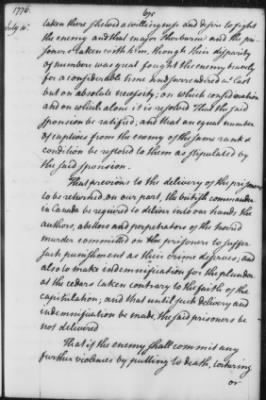 1776.
675
July 10.
taken there shewed a willingness and desire to fight
the enemy and that major Sherburne and the pri-
soners taken with him, though their disparity
of numbers was great fought the enemy bravely
for a considerable time and surrendered at last
but on absolute necessity; on which consideration
and on which alone it is resolved That the said
sponsion be ratified; and that an equal number
of captives from the enemy of the same rank &
condition be restored to them as stipulated by
the said sponsion.
That previous to the delivery of the prisoners
to be returned on our part, the british commander
in Canada be required to deliver into our hands the
authors, abettors and perpetrators of the horred
murder committed on the prisoners to suffer
such punishment as their crime deserves; and
also to make indemnification for the plunder
at the cedars taken contrary to the faith of the
capitulation; and that until such delivery and
indemnification be made, the said prisoners be
not delivered
That if the enemy shall commit any
further violences by putting to death, torturing
or